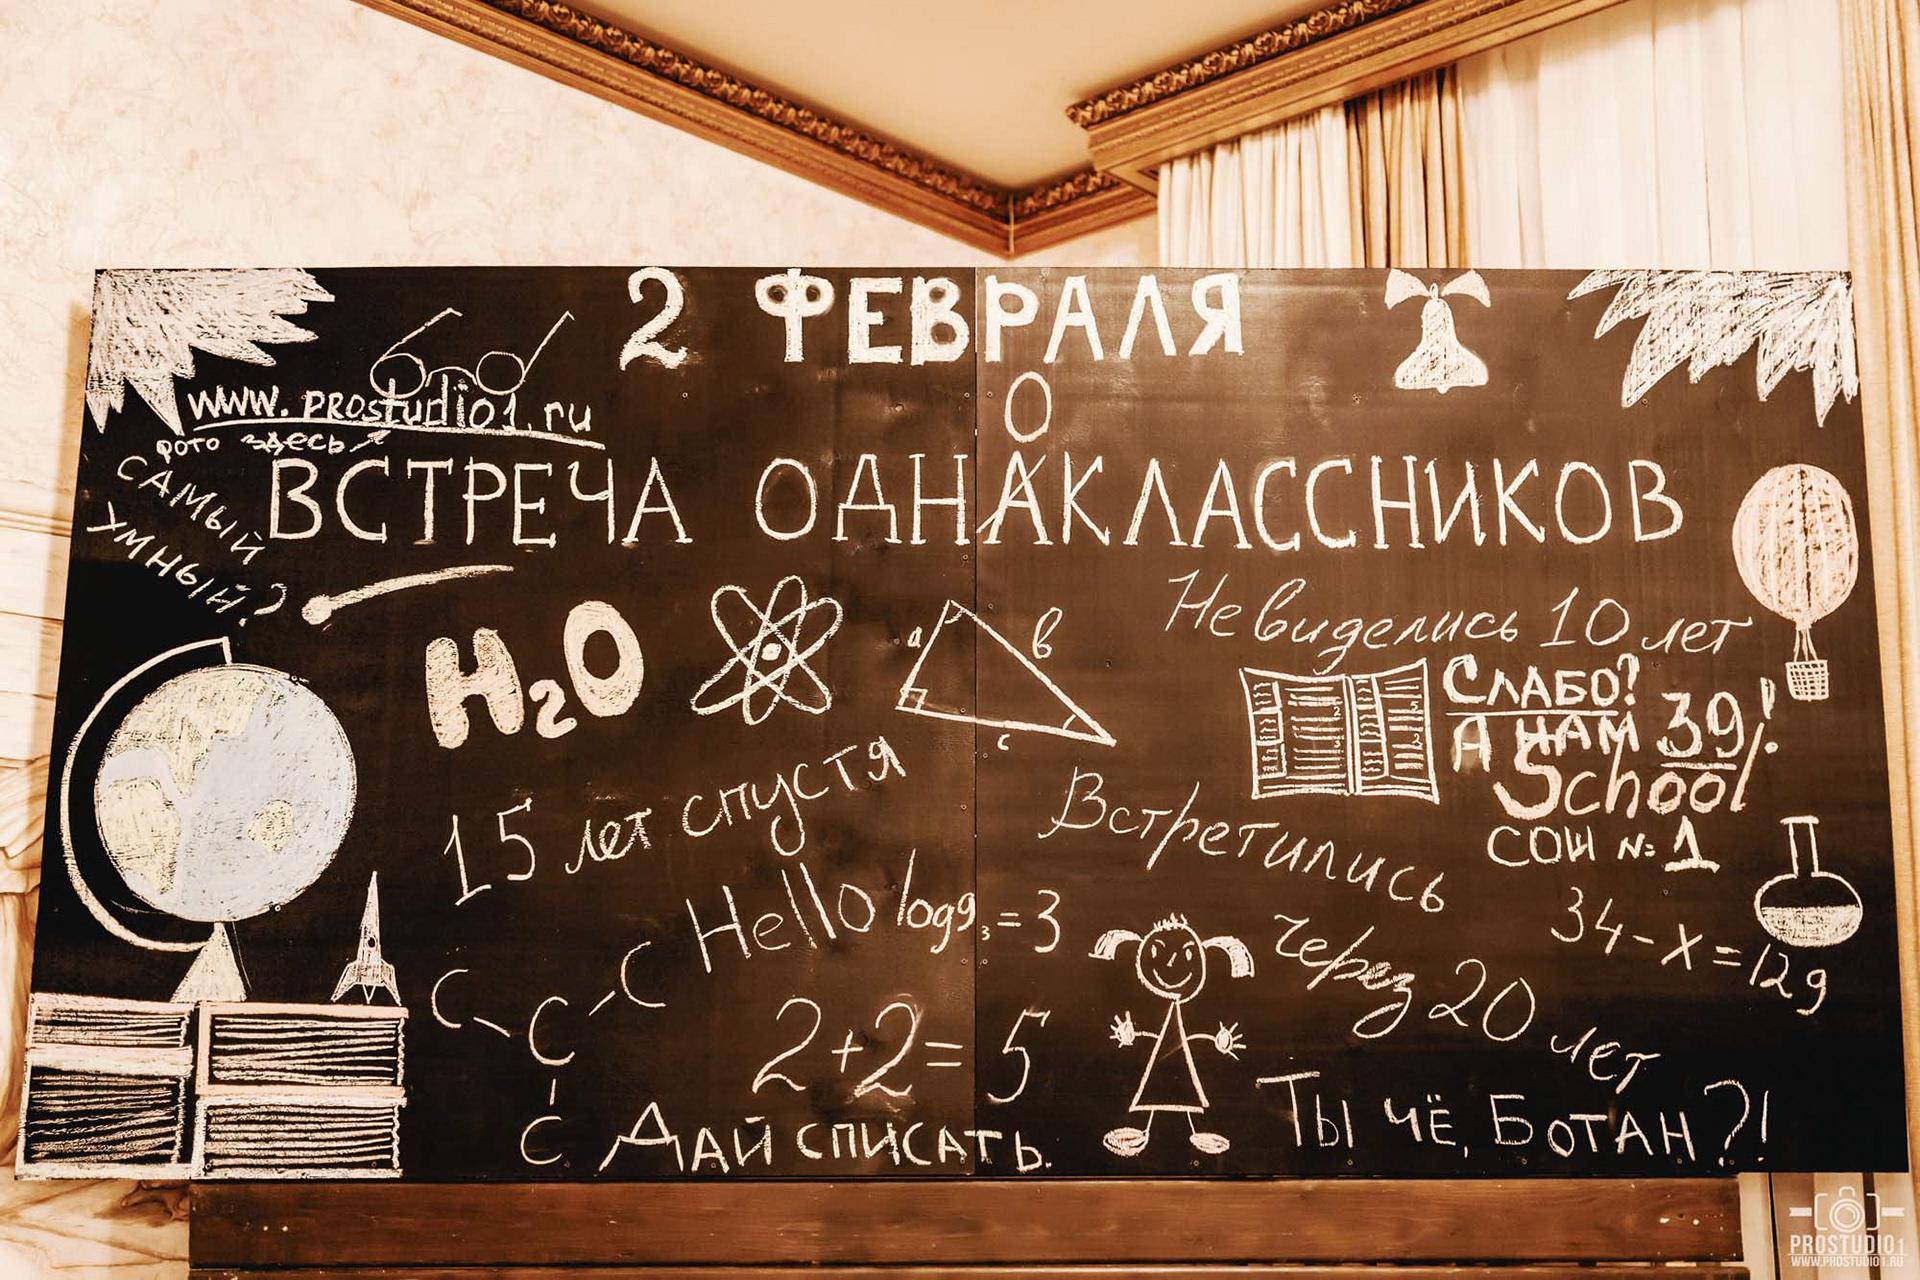 2 ФЕВРАЛЯ
www.prostudio1.ru
ФОТО ЗДЕСЬ
О
ВСТРЕЧА ОДНАКЛАССНИКОВ
САМЫЙ
УМНЫЙ?
Не виделись 10 лет
H2O
a
b
c
СЛАБО?
А НАМ 39!
School
СОШ №1
15 лет спустя
Встретились
через 20 лет
Hello
log9₃=3
34-x=129
C
C
C
C
2+2=5
ДАЙ СПИСАТЬ.
ТЫ ЧЁ, БОТАН?!
PROSTUDIO1
WWW.PROSTUDIO1.RU